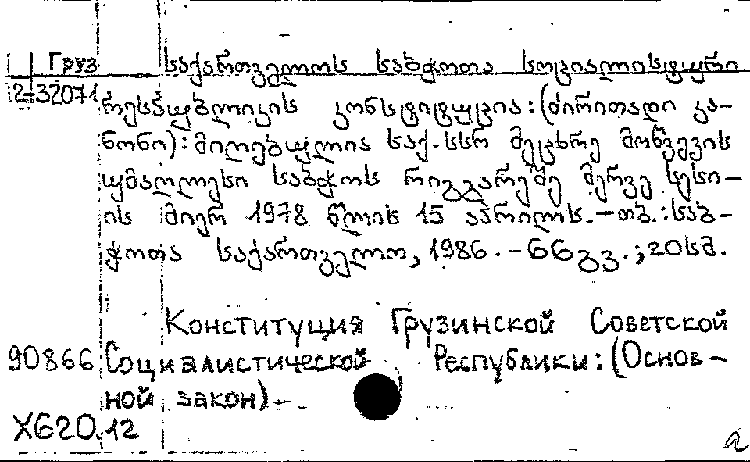 Груз საქართველოს საბჭოთა სოციალისტური
2-32071 რესპუბლიკის კონსტიტუცია: (ძირითადი კა-
ნონი): მიღებულია საქ. სსრ მეცხრე მოწვევის
უმაღლესი საბჭოს რიგგარეშე მერვე სესი-
ის მიერ 1978 წლის 15 აპრილს. - თბ.: საბ-
ჭოთა საქართველო, 1986. - 66 გვ.; 20 სმ.
Конституция Грузинской Советской
90866 Социалистической Республики: (Основ-
ной закон)
X620.12
a